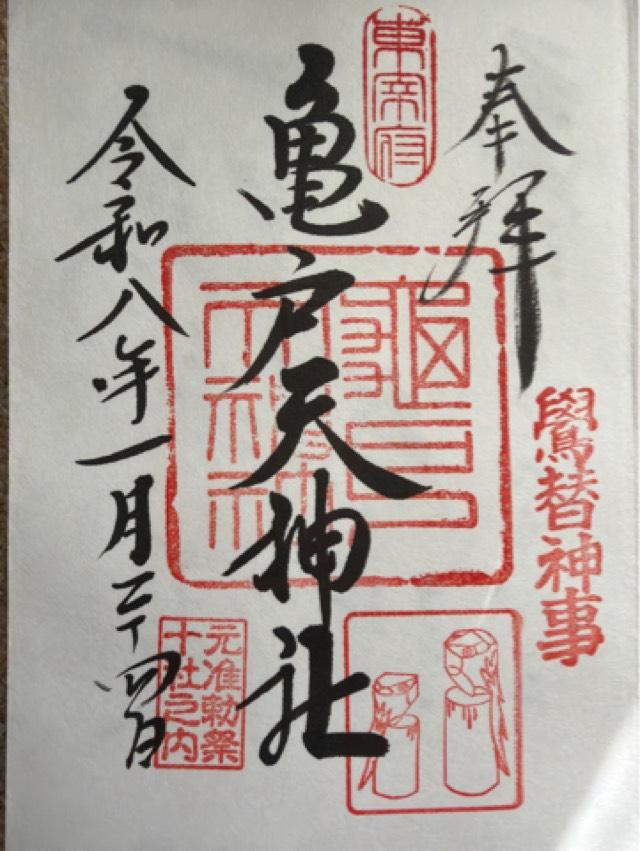 奉拝
鷽替神事
東宰府
亀戸天神社
元准勅祭
十社之内
令和八年一月二十四日